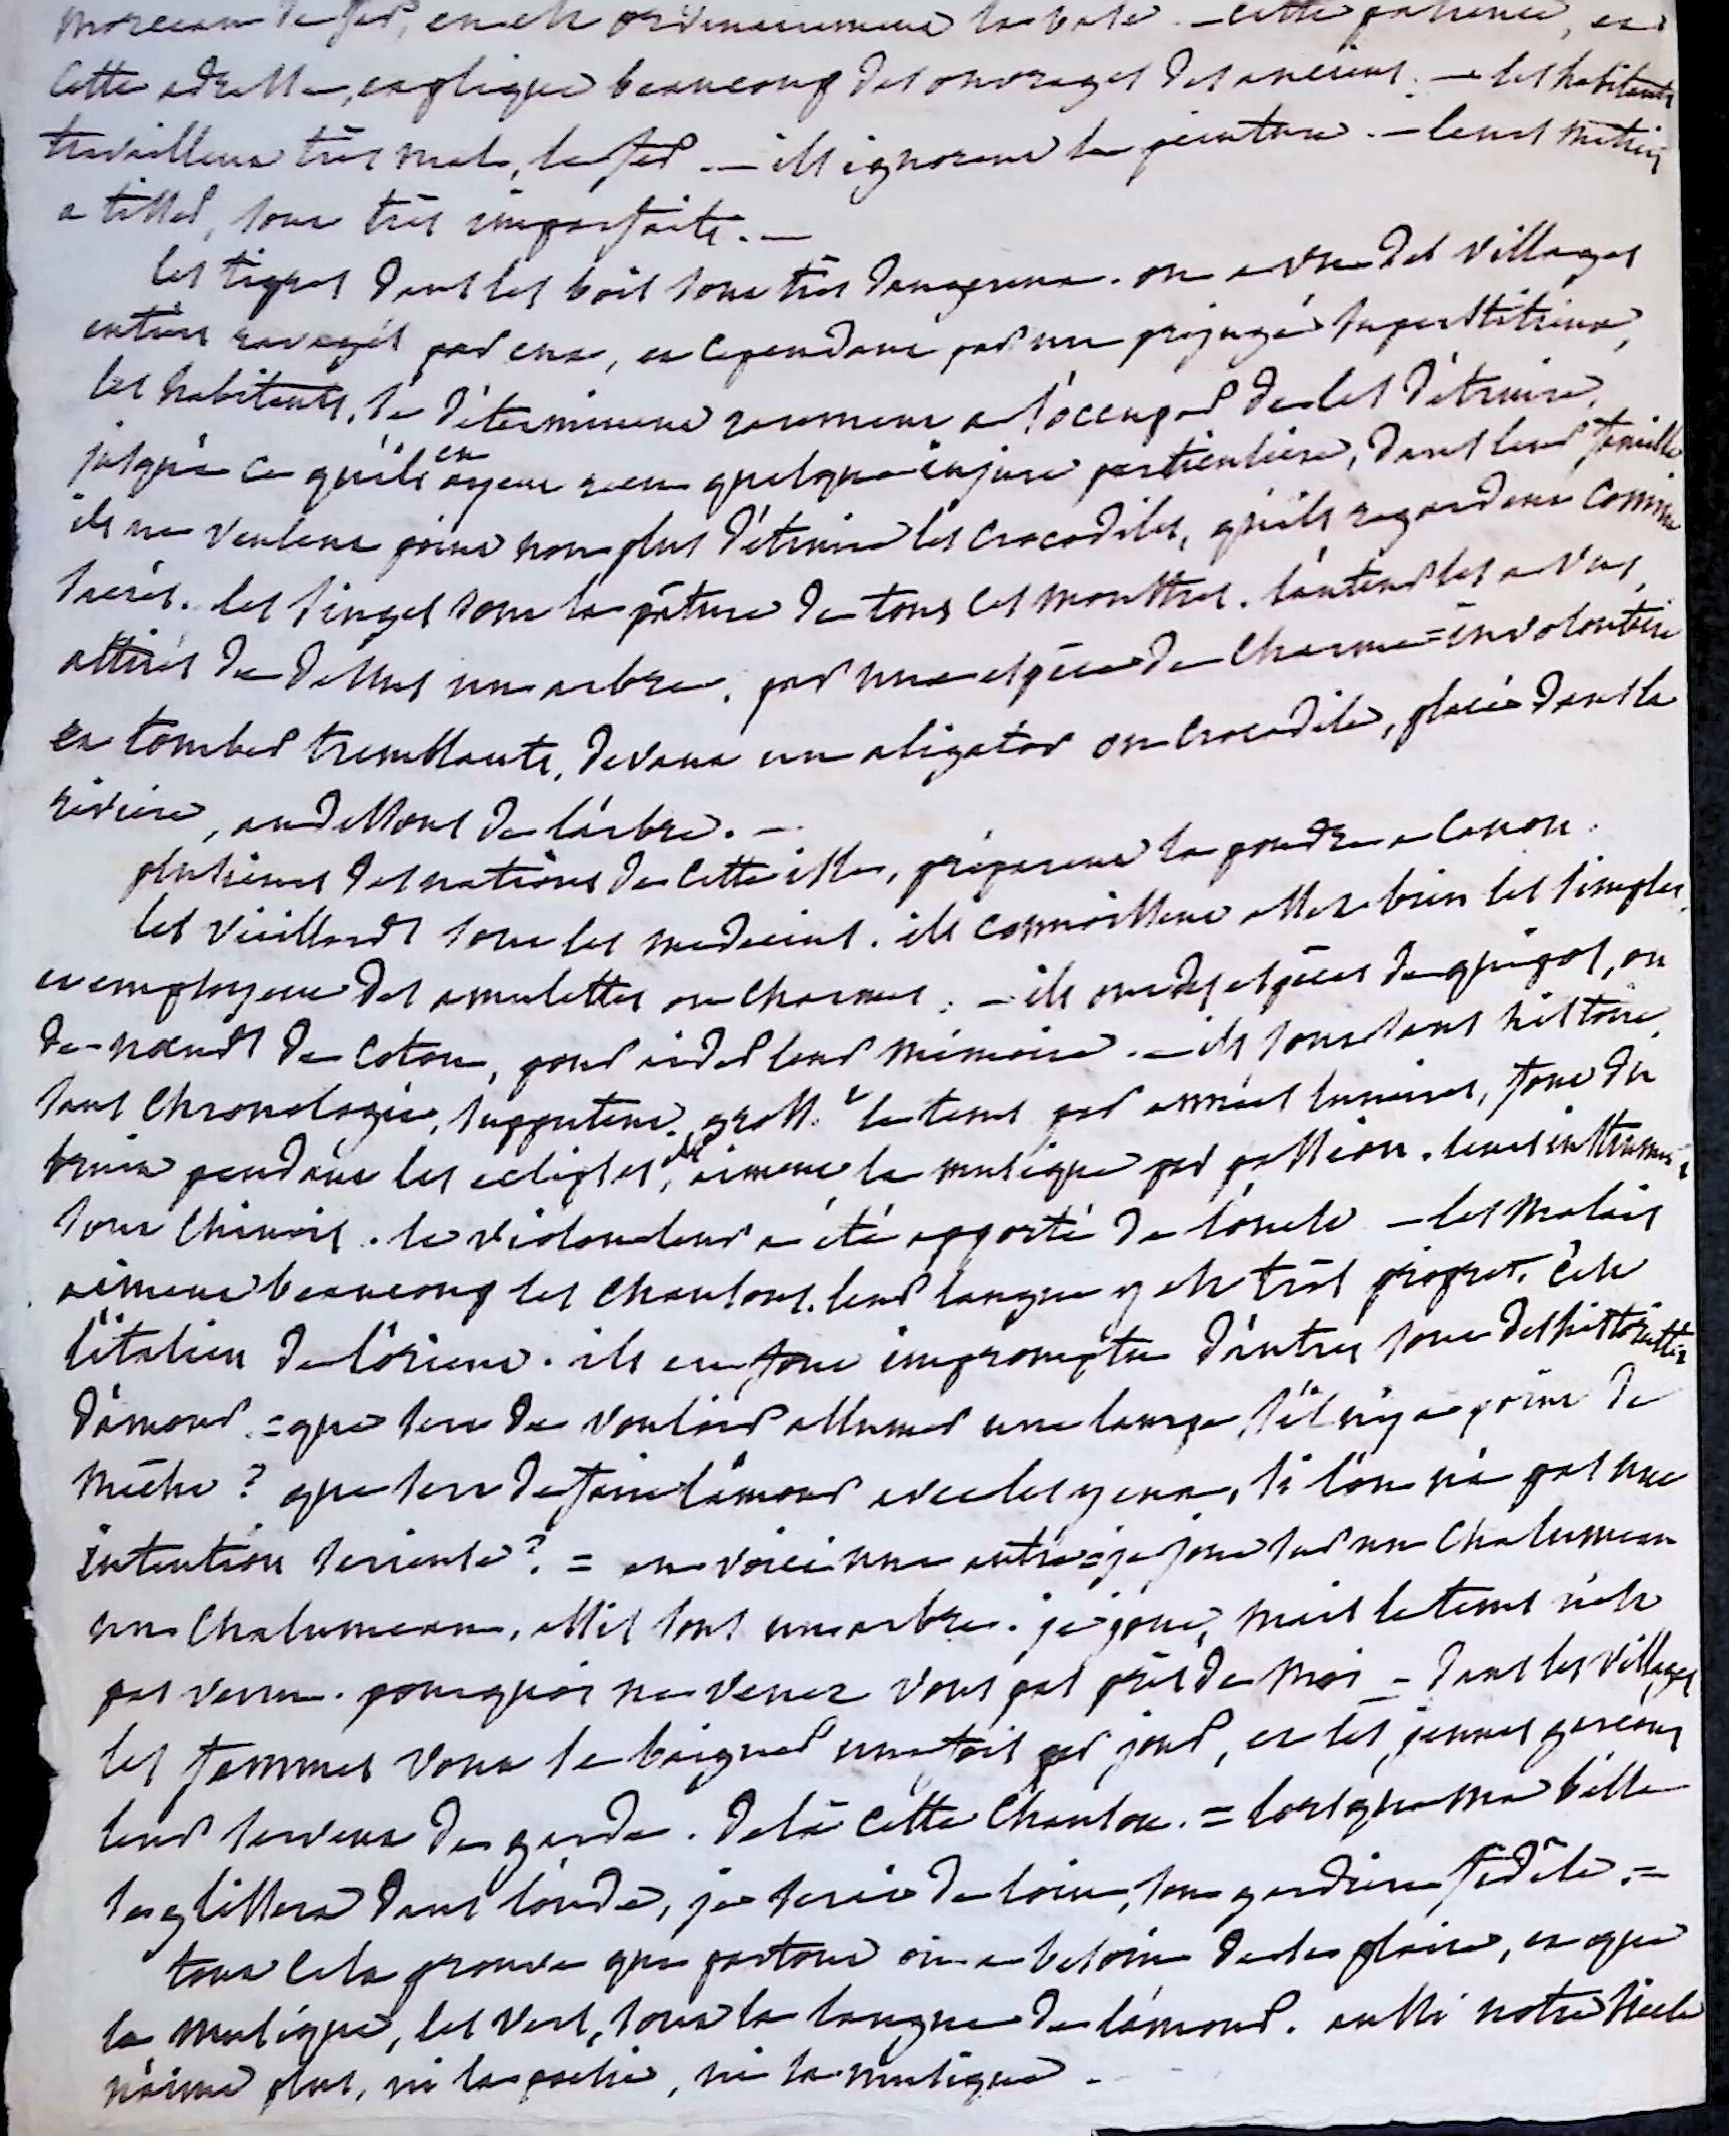 morceau de fer, en est ordinairement la base. — cette patience, et
cette adresse, explique beaucoup des ouvrages des anciens. — les habitants
travaillent très mal, le fer. — ils ignorent la peinture. — leurs métiers
a tisser, sont très imparfaits. —
les tigres dans les bois sont très dangereux. on a vu des villages
entiers ravagés par eux, et cependant par un préjugé superstitieux,
les habitants, se déterminent rarement a s'occuper de les détruire,
jusqu'a ce qu'ils en ayent reçu quelque injure particulière, dans leur famille
ils ne veulent point non plus détruire les crocodiles, qu'ils regardent comme
sacrés. les singes sont la pâture de tous ces monstres. l'auteur les a vus,
attirés de dessus un arbre, par une espèce de charme = involontaire
et tomber tremblants, devant un aligator ou crocodile, placé dans la
rivière, au dessous de l'arbre. —
plusieurs des nations de cette isle, préparent la poudre a canon.
les vieillards sont les medecins. ils connoissent assez bien les simples,
et employent des amulettes ou charmes. — ils ont des espèces de quipos, ou
de nœuds de coton, pour aider leur mémoire. — ils sont sans histoire,
sans chronologie, supputent gross.t le tems par années lunaires, font du
bruit pendant les eclipses, ils aiment la musique par passion. leurs instrumens
sont chinois. le violon leur a été apporté de l'ouest — les malais
aiment beaucoup les chansons. leur langue y est très propre. c'est
l'italien de l'orient. ils en font impromptu d'autres sont des historiettes
d'amour. = que sert de vouloir allumer une lampe, s'il n'y a point de
mèche ? que sert de faire l'amour avec les yeux, si l'on n'a pas une
intention serieuse ? = en voici une autre = je joue sur un chalumeau
un chalumeau, assis sous un arbre. je joue, mais le tems n'est
pas venu. pourquoi ne venez vous pas près de moi — dans les villages
les femmes vont se baigner une fois par jour, et les jeunes garçons
leur servent de garde. delà cette chanson. = lorsque ma belle
se glissera dans l'onde, je serai de loin, son gardien fidèle. =
tout cela prouve que partout on a besoin de se plaire, et que
la musique, les vers, sont la langue de l'amour. aussi notre siècle
n'aime plus, ni la poësie, ni la musique. -